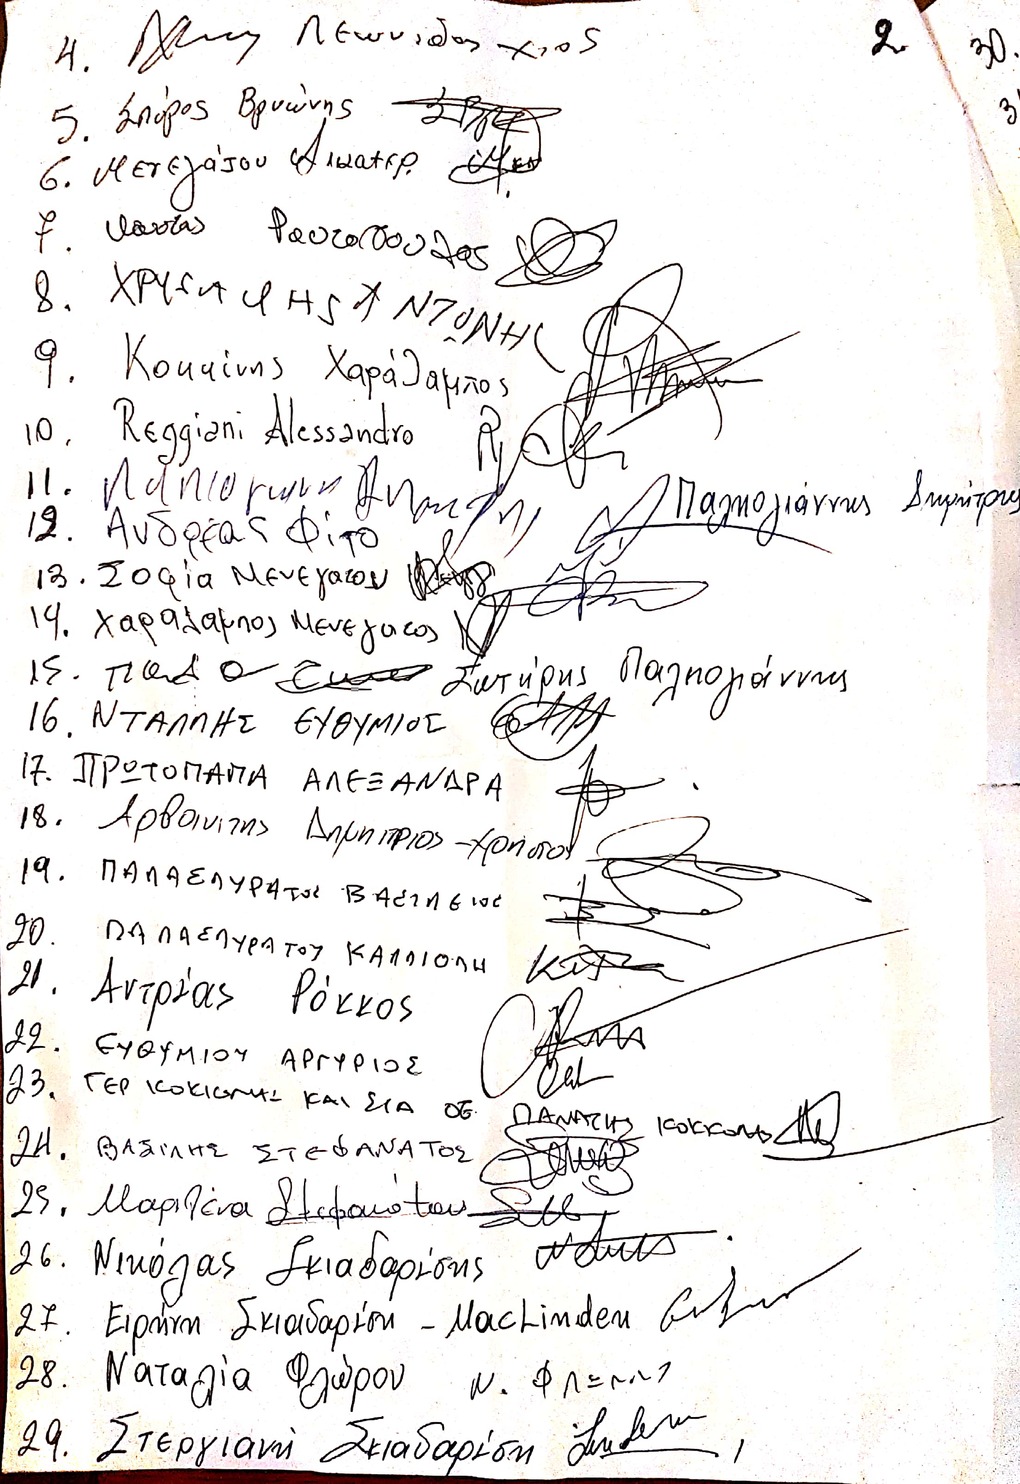 4. Λεωνιδας χιος 2. 30.
5. Σπύρος Βρυώνης
6. Μενεγάτου Αικατερ.
7. Κωστας Ραυτοπουλος
8. ΧΡΥΣΑΦΗΣ ΑΝΤΩΝΗΣ
9. Κοκκίνης Χαράλαμπος
10. Reggiani Alessandro
11. Παληογιάννης Δημήτρης
12. Ανδρέας Φίτο
13. Σοφία Μενεγατου
14. Χαράλαμπος Μενεγατος
15. Σωτήρης Παληογιάννης
16. ΝΤΑΛΛΗΣ ΕΥΘΥΜΙΟΣ
17. ΠΡΩΤΟΠΑΠΑ ΑΛΕΞΑΝΔΡΑ
18. Αρβανιτης Δημητριος-χρηστος
19. ΠΑΠΑΣΠΥΡΑΤΟΣ ΒΑΣΙΛΕΙΟΣ
20. ΠΑΠΑΣΠΥΡΑΤΟΥ ΚΑΛΛΙΟΠΗ
21. Αντρέας Ρόκκος
22. ΕΥΘΥΜΙΟΥ ΑΡΓΥΡΙΟΣ
23. ΚΑΙ ΣΙΑ ΟΕ ΠΑΝΑΓΗΣ
24. ΒΑΣΙΛΗΣ ΣΤΕΦΑΝΑΤΟΣ
25. Μαριλένα Στεφανάτου
26. Νικόλας Σκιαδαρέσης
27. Ειρήνη Σκιαδαρέση - MacLinden
28. Ναταλία Φλώρου Ν.
29. Στεργιανή Σκιαδαρέση